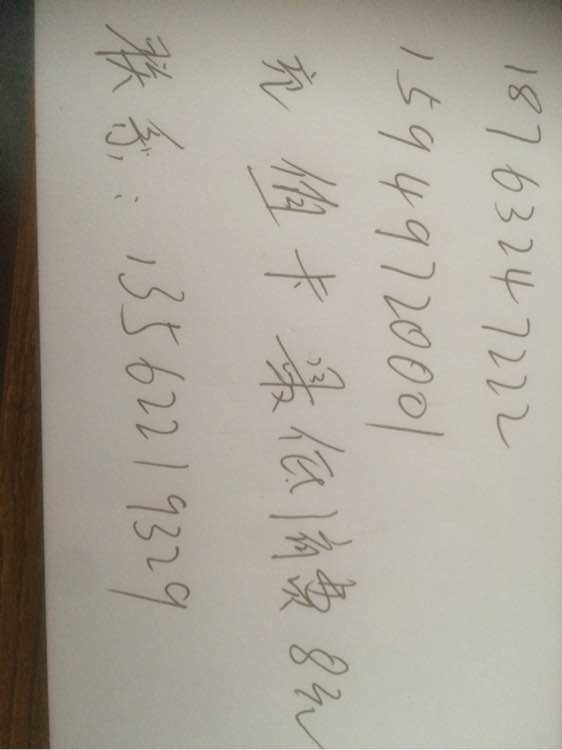 18763247222
15949720001
充值卡最低消费8元
联系:13562219329